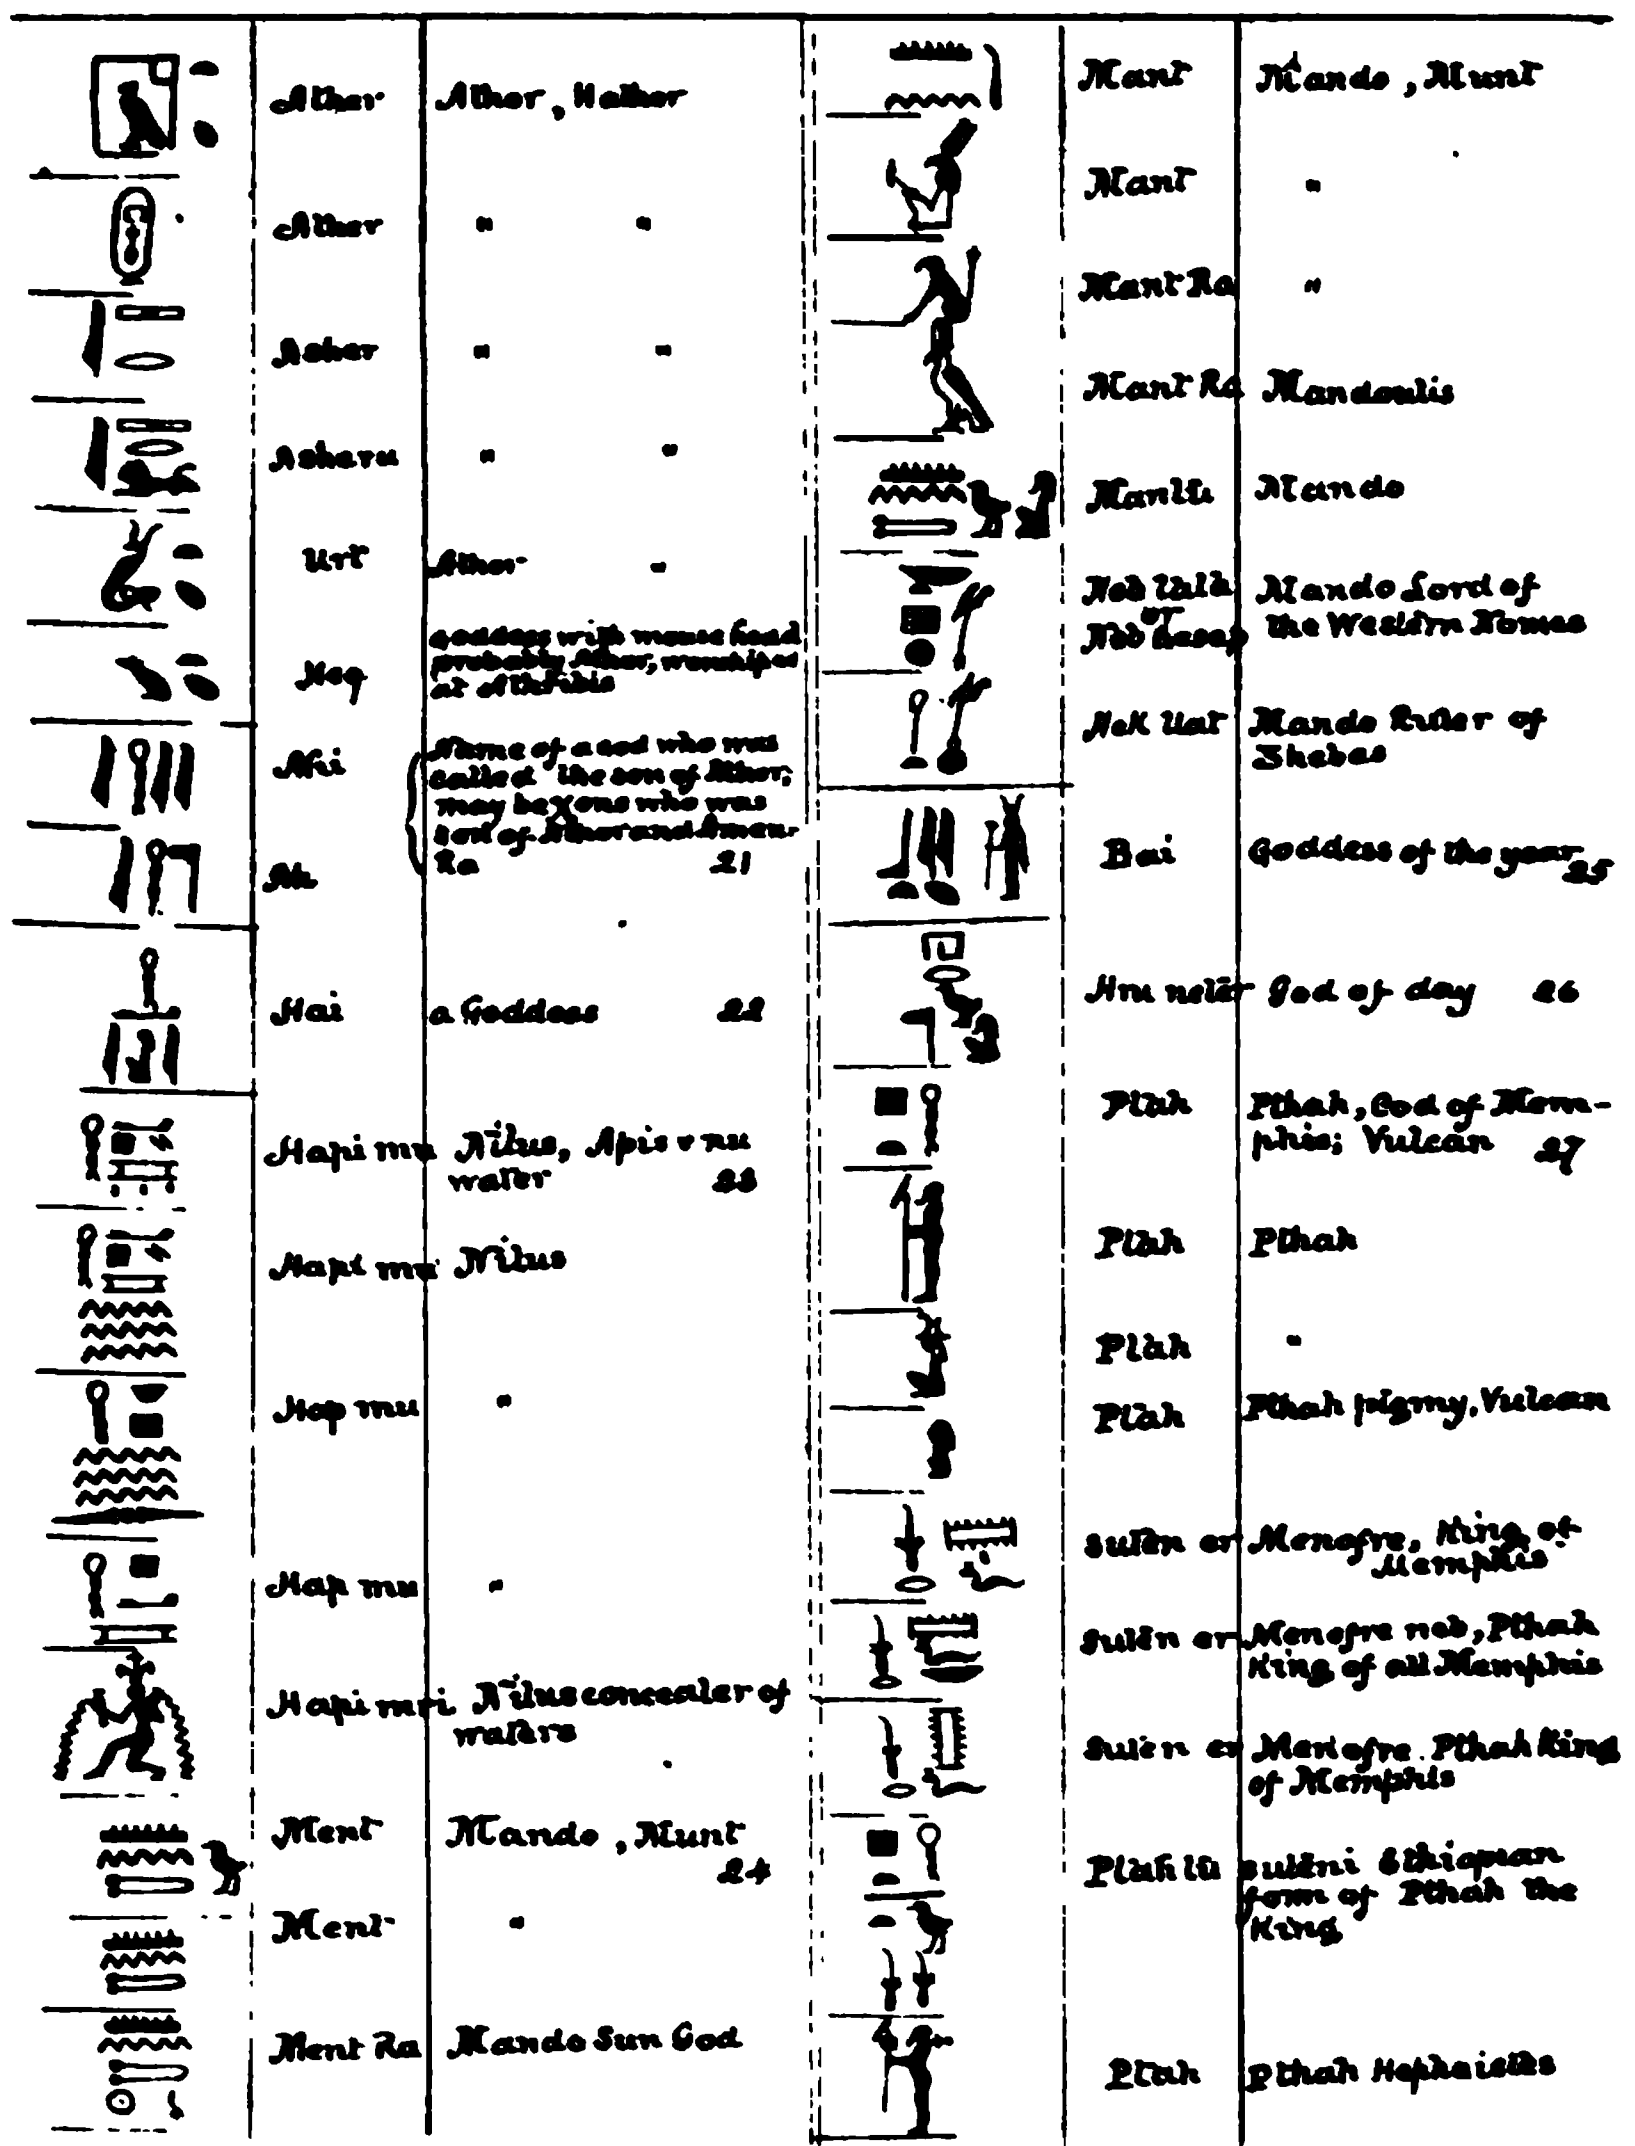 Ather Athor, Hathor
Ather " "
Asher " "
Asheru " "
Urt Athor "
Heq goddess with mouse head
probably Athor, worshiped
at Athribis
Ahi Name of a god who was
called the son of Athor;
may be one who was
son of Athor and Amen-
Ah Ra 21
Hai a Goddess 22
Hapi mu Nilus, Apis v nu
water 23
Hapi mu Nilus
Hap mu "
Hap mu "
Hapi mri Nilus concealer of
waters
Ment Mando, Munt
24
Ment "
Ment Ra Mando Sun God
Mant Mando, Munt
Mant "
Mant Ra "
Mant Ra Mandoulis
Mantu Mando
Neb Mando Lord of
or
Neb the Western Nomes
Hek Uat Mando Ruler of
Thebes
Bai Goddess of the year
25
Hru neter God of day 26
Ptah Pthah, God of Mem-
phis; Vulcan 27
Ptah Pthah
Ptah "
Ptah Pthah pigmy, Vulcan
Suten er Menofre, King of
Memphis
Suten er Menofre neb, Pthah
King of all Memphis
Suten er Menofre. Pthah King
of Memphis
Ptah tu suteni Ethiopian
form of Pthah the
King
Ptah Pthah Hephaistes